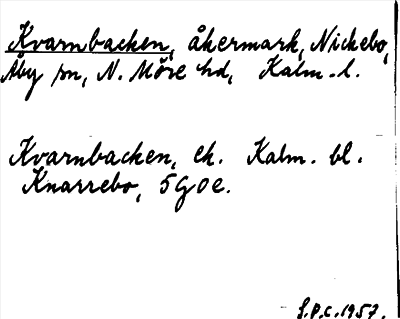 Kvarnbacken, åkermark, Nickebo,
Åby sn, N. Möre hd, Kalm. l.
Kvarnbacken, ek. Kalm. bl.
Knarrebo, 5G0e.
S.P.C. 1957.